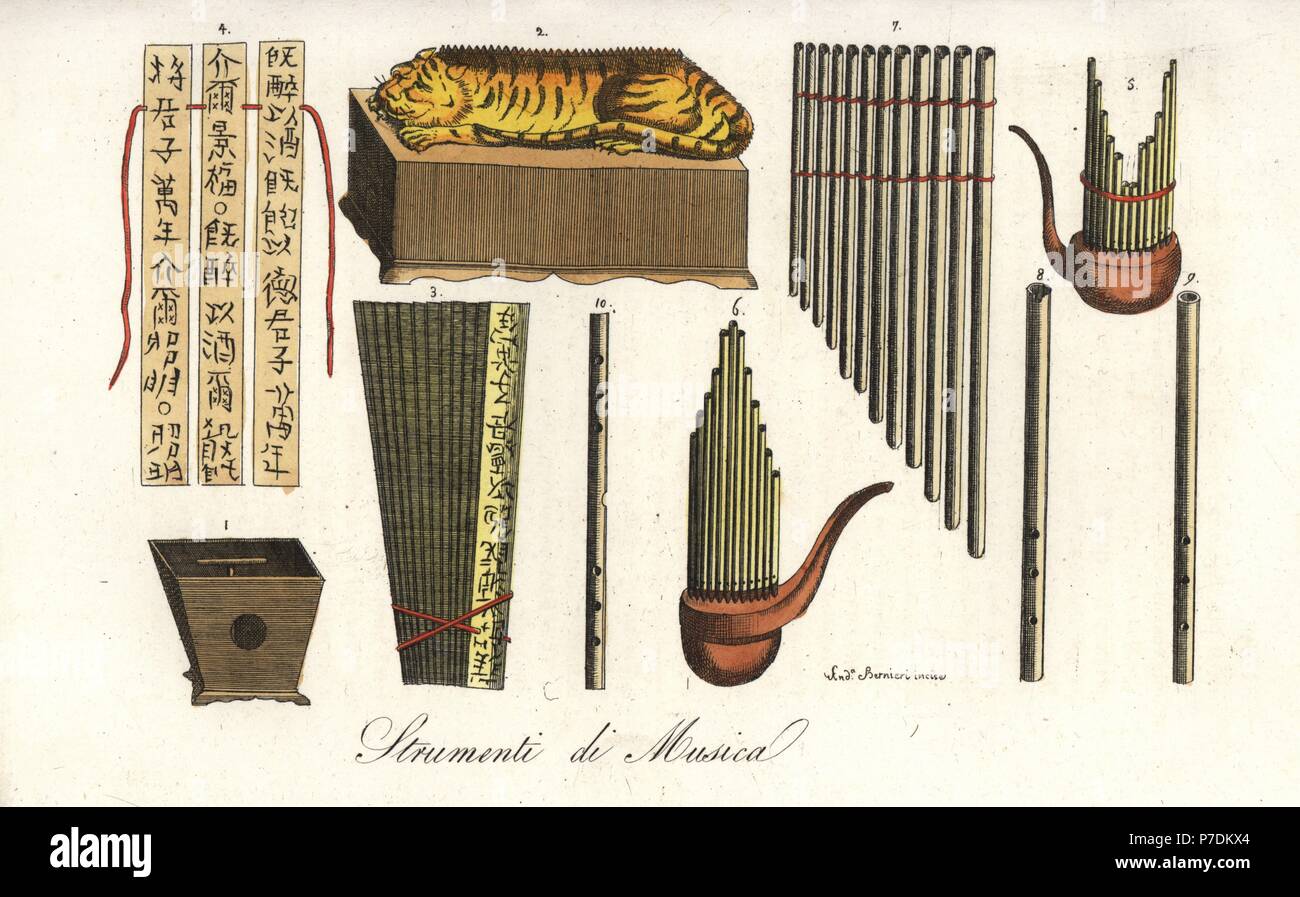 4.
2.
7.
5.
既醉以酒既飽以德君子萬年
介爾景福。既醉以酒爾殽既
將君子萬年介爾昭明。昭明
3.
10.
6.
8.
9.
1
And.ª Bernieri incise
Strumenti di Musica
alamy
Image ID: P7DKX4
www.alamy.com